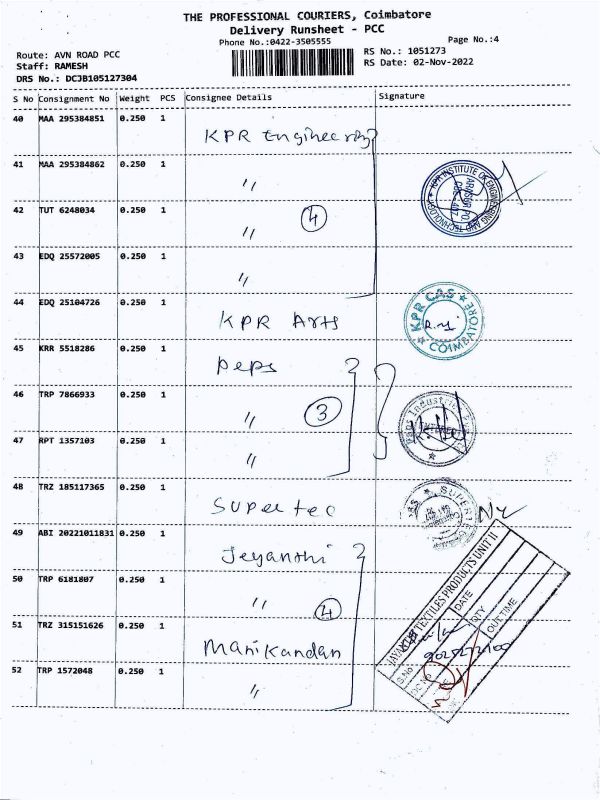 THE PROFESSIONAL COURIERS, Coimbatore
Delivery Runsheet - PCC
Phone No.:0422-3505555
Page No.:4
Route: AVN ROAD PCC
Staff: RAMESH
DRS No.: DCJB105127304
RS No.: 1051273
RS Date: 02-Nov-2022
S No Consignment No Weight PCS Consignee Details Signature
40 MAA 295384851 0.250 1 KPR Engineering
41 MAA 295384862 0.250 1 "
42 TUT 6248034 0.250 1 " 4
43 EDQ 25572005 0.250 1 "
44 EDQ 25104726 0.250 1 KPR Arts
45 KRR 5518286 0.250 1 Peps
46 TRP 7866933 0.250 1 " 3
47 RPT 1357103 0.250 1 "
48 TRZ 185117365 0.250 1 Supertec
49 ABI 20221011831 0.250 1 Jeyanthi
50 TRP 6181807 0.250 1 " 4
51 TRZ 315151626 0.250 1 Manikandan
52 TRP 1572048 0.250 1 "
KPR INSTITUTE OF ENGINEERING AND TECHNOLOGY
KPR CAS
COIMBATORE
TEXTILES PRODUCTS UNIT II
S.No
DATE
QTY
OUT TIME